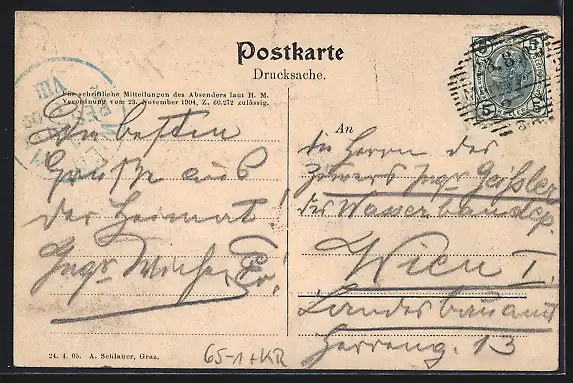 Postkarte
Drucksache.
Für schriftliche Mitteilungen des Absenders laut H. M.
Verordnung vom 23. November 1904, Z. 60.272 zulässig.
Die besten
Grüße aus
der Heimat!
Ingr
An
die Herren des
Ingr Geißler
der Wasserbaudep.
Wien I.
Landesbauamt
Herreng. 13
24. 4. 05. A. Schlauer, Graz.
65-1+KR
WIEN
VIII
5
5